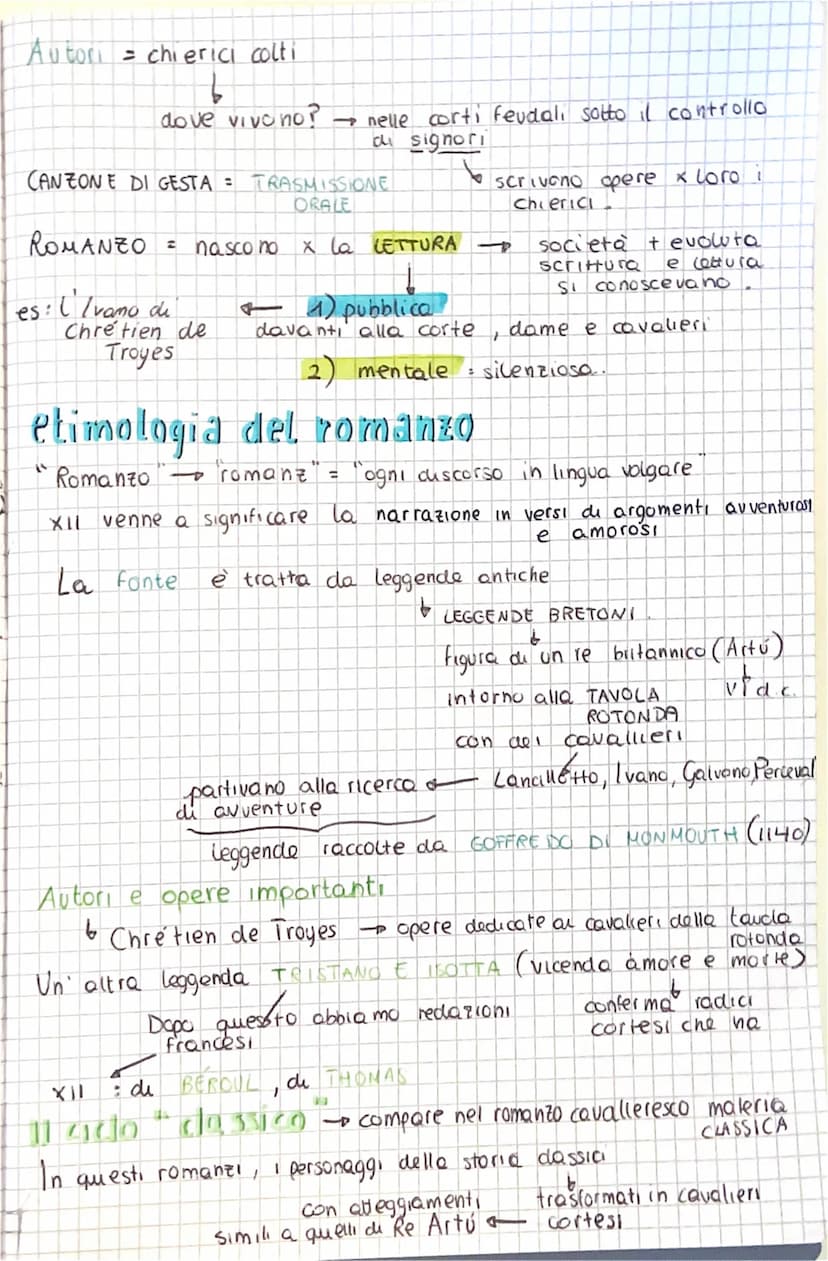 Autori = chierici colti
↓
dove vivono? → nelle corti feudali sotto il controllo
di signori
CANZONE DI GESTA = TRASMISSIONE
ORALE
↳ scrivono opere x loro i
chierici.
ROMANZO = nascono x la LETTURA → società + evoluta
scrittura e lettura
si conoscevano.
es: L'Ivano di ← 1) pubblica
Chrétien de davanti alla corte, dame e cavalieri
Troyes
2) mentale: silenziosa.
etimologia del romanzo
"Romanzo" → "romanz" = "ogni discorso in lingua volgare"
XII venne a significare la narrazione in versi di argomenti avventurosi
e amorosi
La fonte è tratta da leggende antiche
↳ LEGGENDE BRETONI.
↓
figura di un re britannico (Artú)
intorno alla TAVOLA
ROTONDA
V I d.c.
con dei cavalieri
partivano alla ricerca ← Lancillotto, Ivano, Galvano, Perceval
di avventure
leggende raccolte da GOFFREDO DI MONMOUTH (1140)
Autori e opere importanti
↳ Chrétien de Troyes → opere dedicate ai cavalieri della tavola
rotonda
Un' altra leggenda TRISTANO E ISOTTA (vicenda amore e morte)
Dopo questro abbiamo redazioni
francesi
↳ conferma radici
cortesi che ha
XII : di BÉROUL, di THOMAS
Il ciclo "classico" → compare nel romanzo cavalleresco materia
CLASSICA
In questi romanzi, i personaggi della storia classici
↓
con atteggiamenti trasformati in cavalieri
simili a quelli di Re Artú ← cortesi